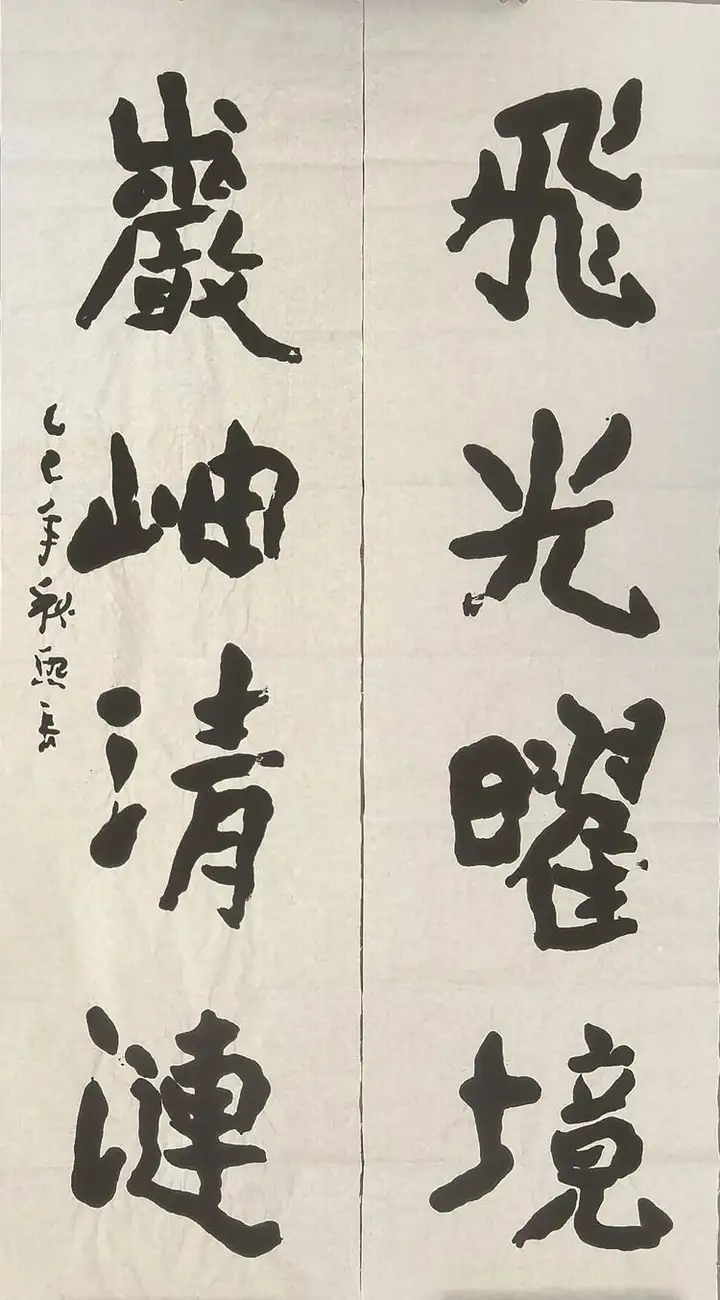 飛光曜境
巖岫清漣
乙巳年秋熙長